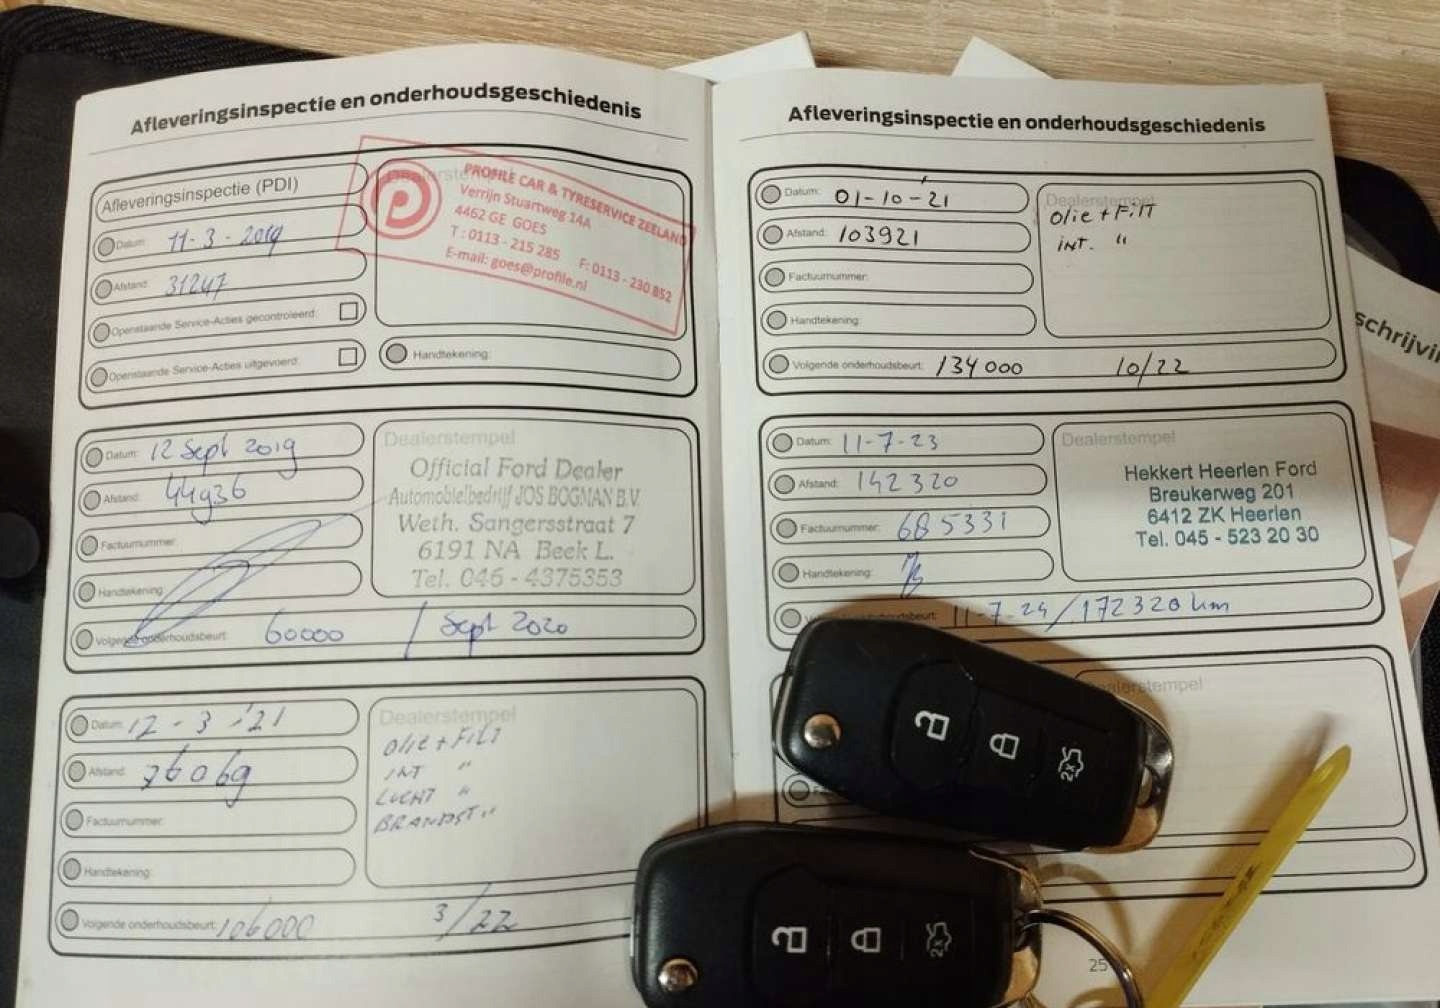 Afleveringsinspectie en onderhoudsgeschiedenis
Afleveringsinspectie (PDI)
Datum: 11-3-2019
Afstand: 31247
Openstaande Service-Acties gecontroleerd:
Openstaande Service-Acties uitgevoerd:
Dealerstempel
PROFILE CAR & TYRESERVICE ZEELAND
Verrijn Stuartweg 14A
4462 GE GOES
T: 0113 - 215 285 F: 0113 - 230 852
E-mail: goes@profile.nl
Handtekening:
Datum: 12 Sept 2019
Afstand: 44936
Factuurnummer:
Handtekening:
Volgende onderhoudsbeurt: 60000 / Sept 2020
Dealerstempel
Official Ford Dealer
Automobielbedrijf JOS BOGMAN B.V.
Weth. Sangersstraat 7
6191 NA Beek L.
Tel. 046 - 4375353
Datum: 12-3-'21
Afstand: 76069
Factuurnummer:
Handtekening:
Volgende onderhoudsbeurt: 106000 3/22
Dealerstempel
OLIE + FILT
INT "
LUCHT "
BRANDST "
Afleveringsinspectie en onderhoudsgeschiedenis
Datum: 01-10-21
Afstand: 103921
Factuurnummer:
Handtekening:
Volgende onderhoudsbeurt: 134000 10/22
Dealerstempel
Olie + FILT
INT. "
Datum: 11-7-23
Afstand: 142320
Factuurnummer: 685331
Handtekening:
onderhoudsbeurt: 11-7-24/172320 km
Dealerstempel
Hekkert Heerlen Ford
Breukerweg 201
6412 ZK Heerlen
Tel. 045 - 523 20 30
Dealerstempel
2x
2x
25
schrijvin